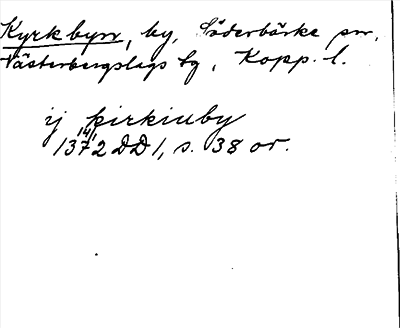 Kyrkbyn, by, Söderbärke sn,
Västerbergslags tg, Kopp. l.
ij þirkiuby
14/1
1372 DD 1, s. 38 or.